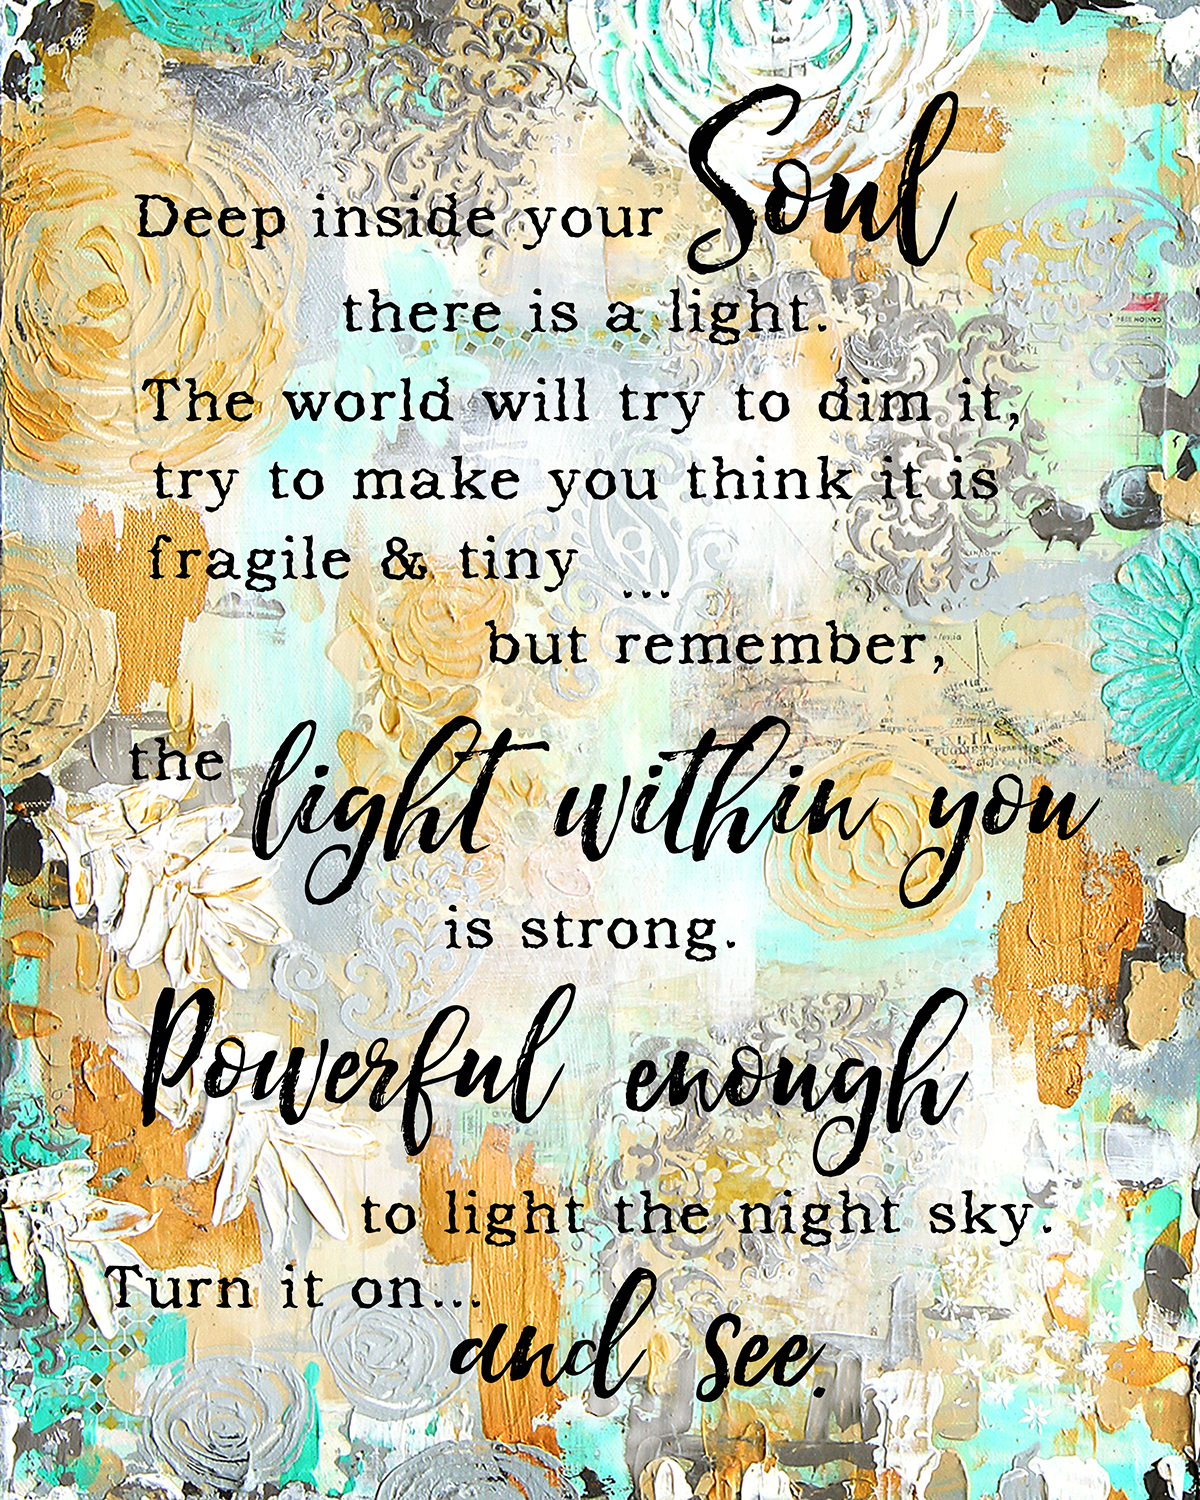 Deep inside your Soul
there is a light.
The world will try to dim it,
try to make you think it is
fragile & tiny
...
but remember,
the light within you
is strong.
Powerful enough
to light the night sky.
Turn it on...
and see.